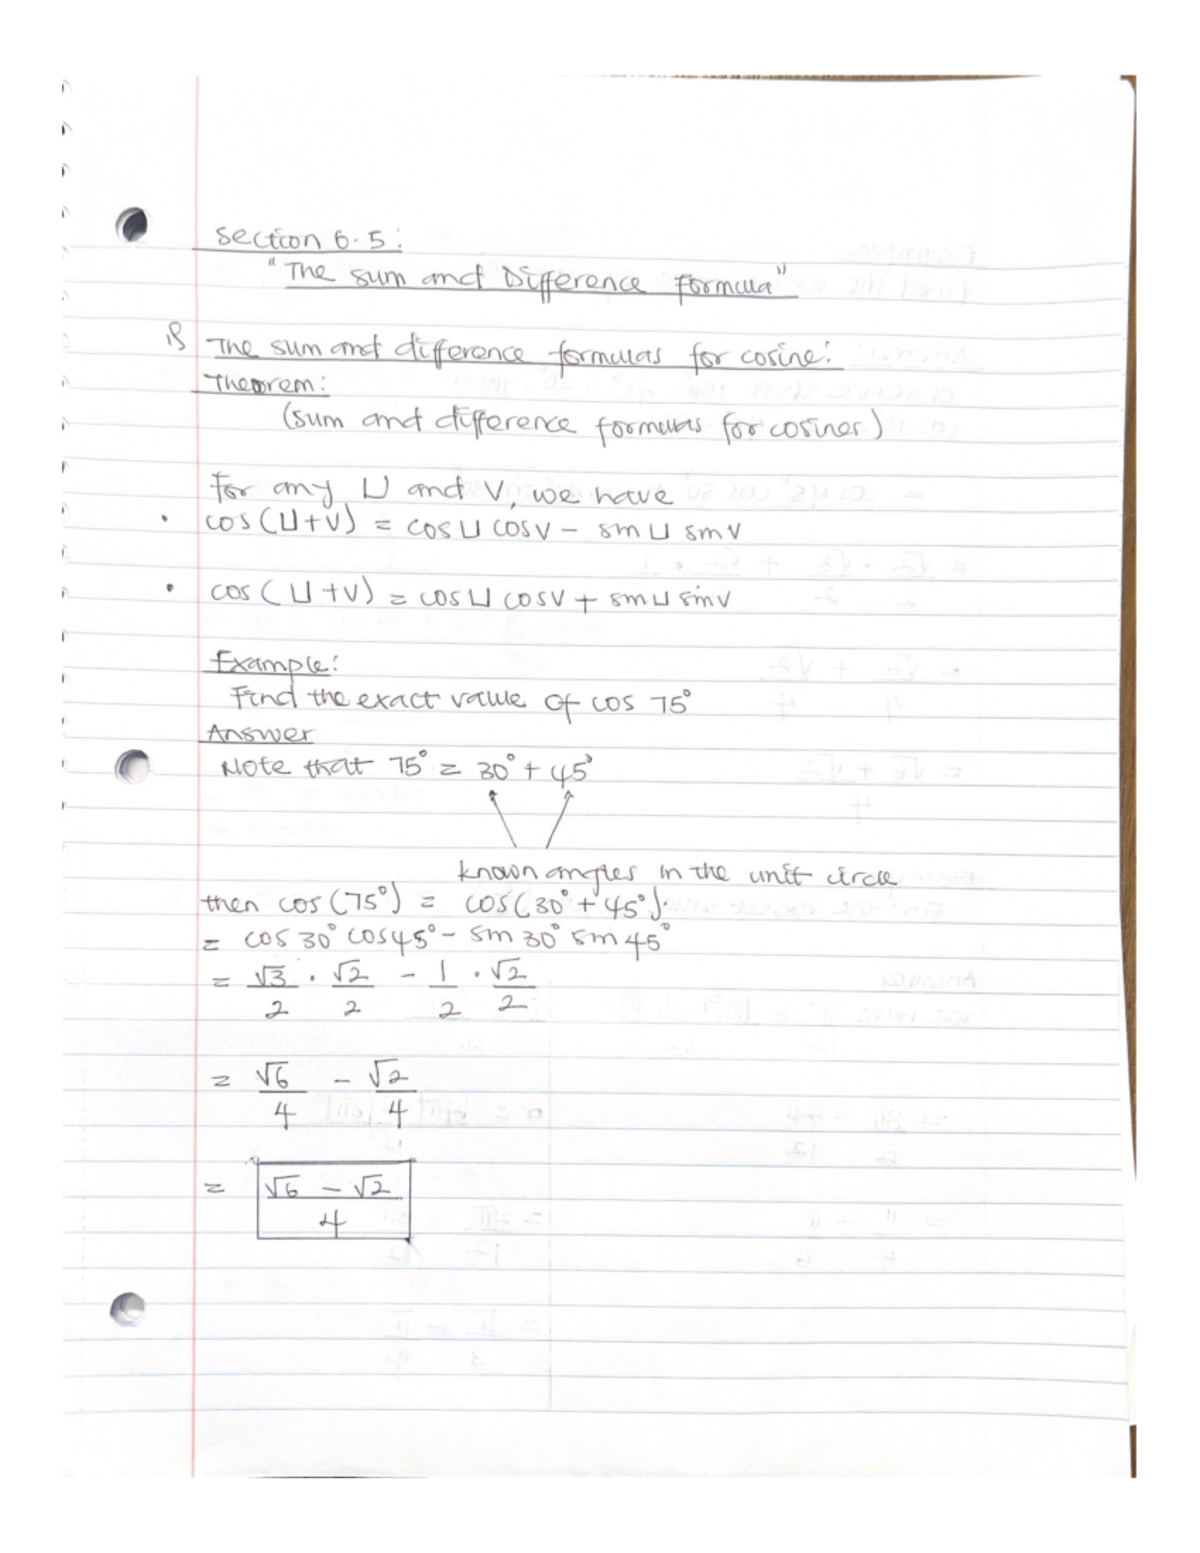 Section 6.5:
"The sum and Difference Formula"
The sum and difference formulas for cosine:
Theorem:
(sum and difference formulas for cosines)
For any U and V, we have
• cos(U+V) = cosU cosV − sinU sinV
• cos(U+V) = cosU cosV + sinU sinV
Example:
Find the exact value of cos 75°
Answer
Note that 75° = 30° + 45°
known angles in the unit circle
then cos(75°) = cos(30° + 45°).
= cos30° cos45° − sin30° sin45°
= √3/2 · √2/2 − 1/2 · √2/2
= √6/4 − √2/4
= √6 − √2 / 4